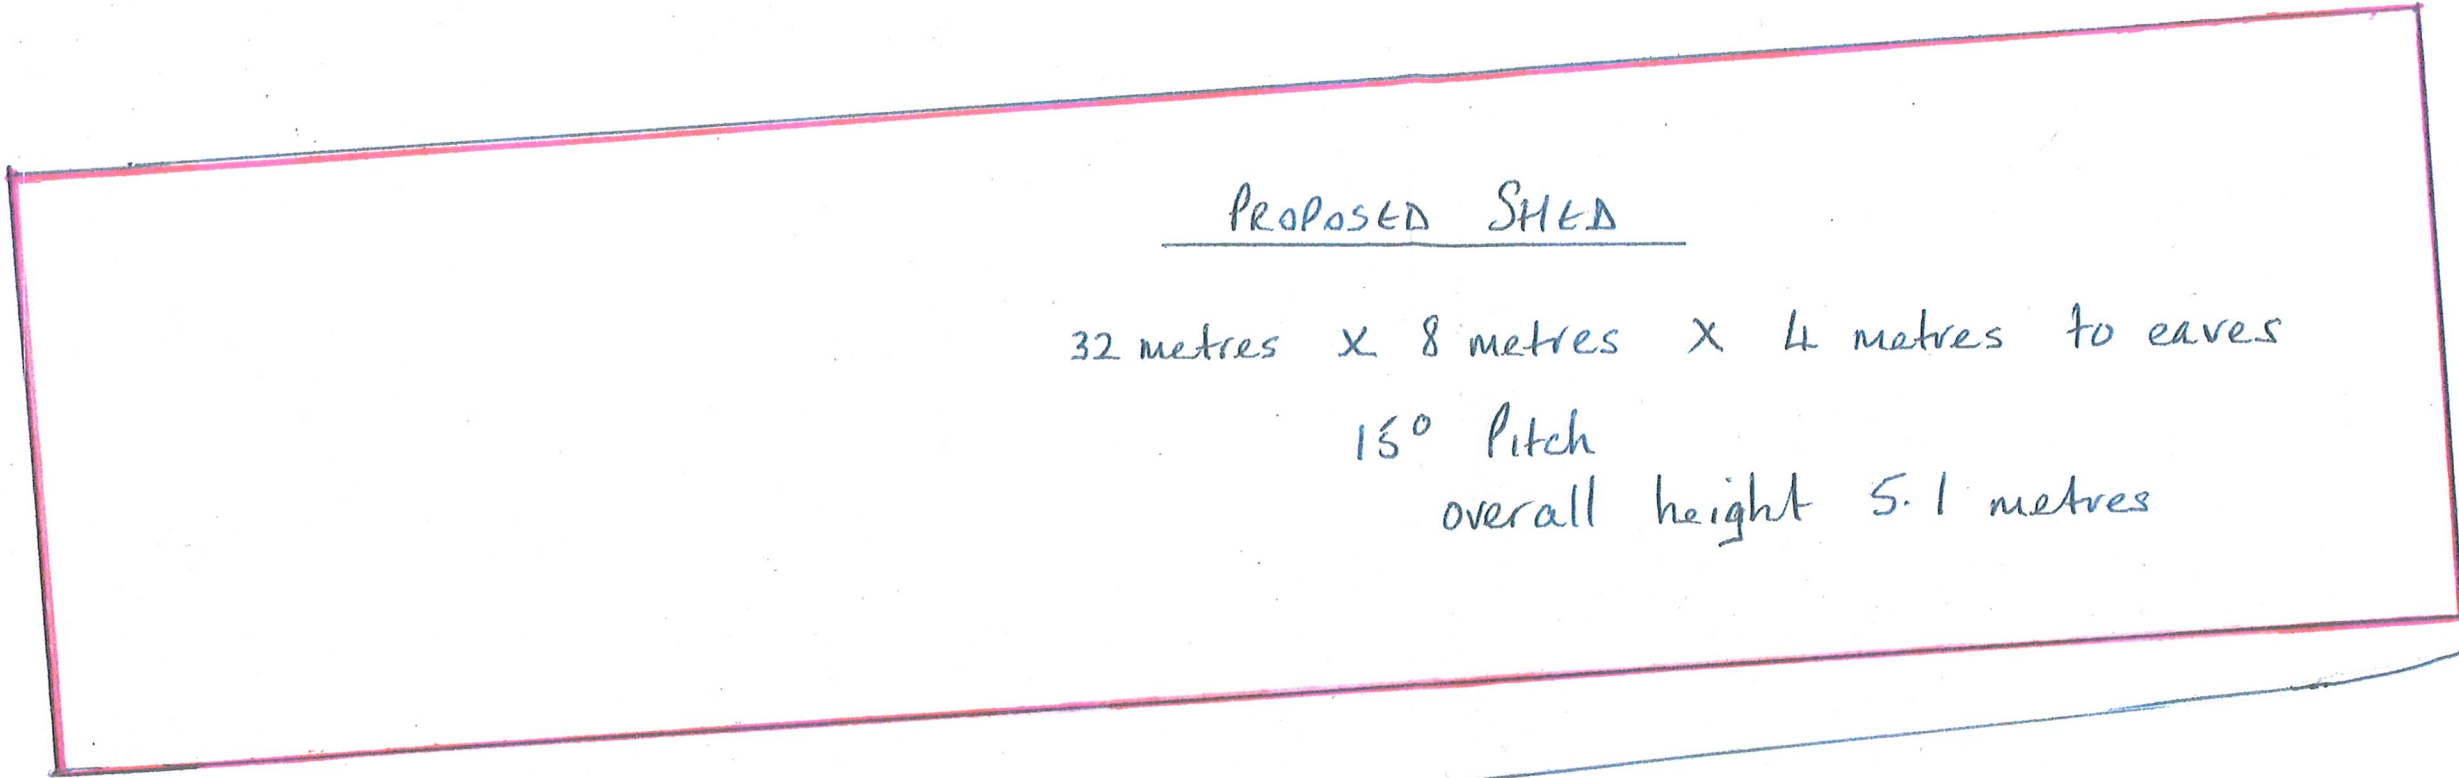 PROPOSED SHED
32 metres x 8 metres x 4 metres to eaves
15° Pitch
overall height 5.1 metres